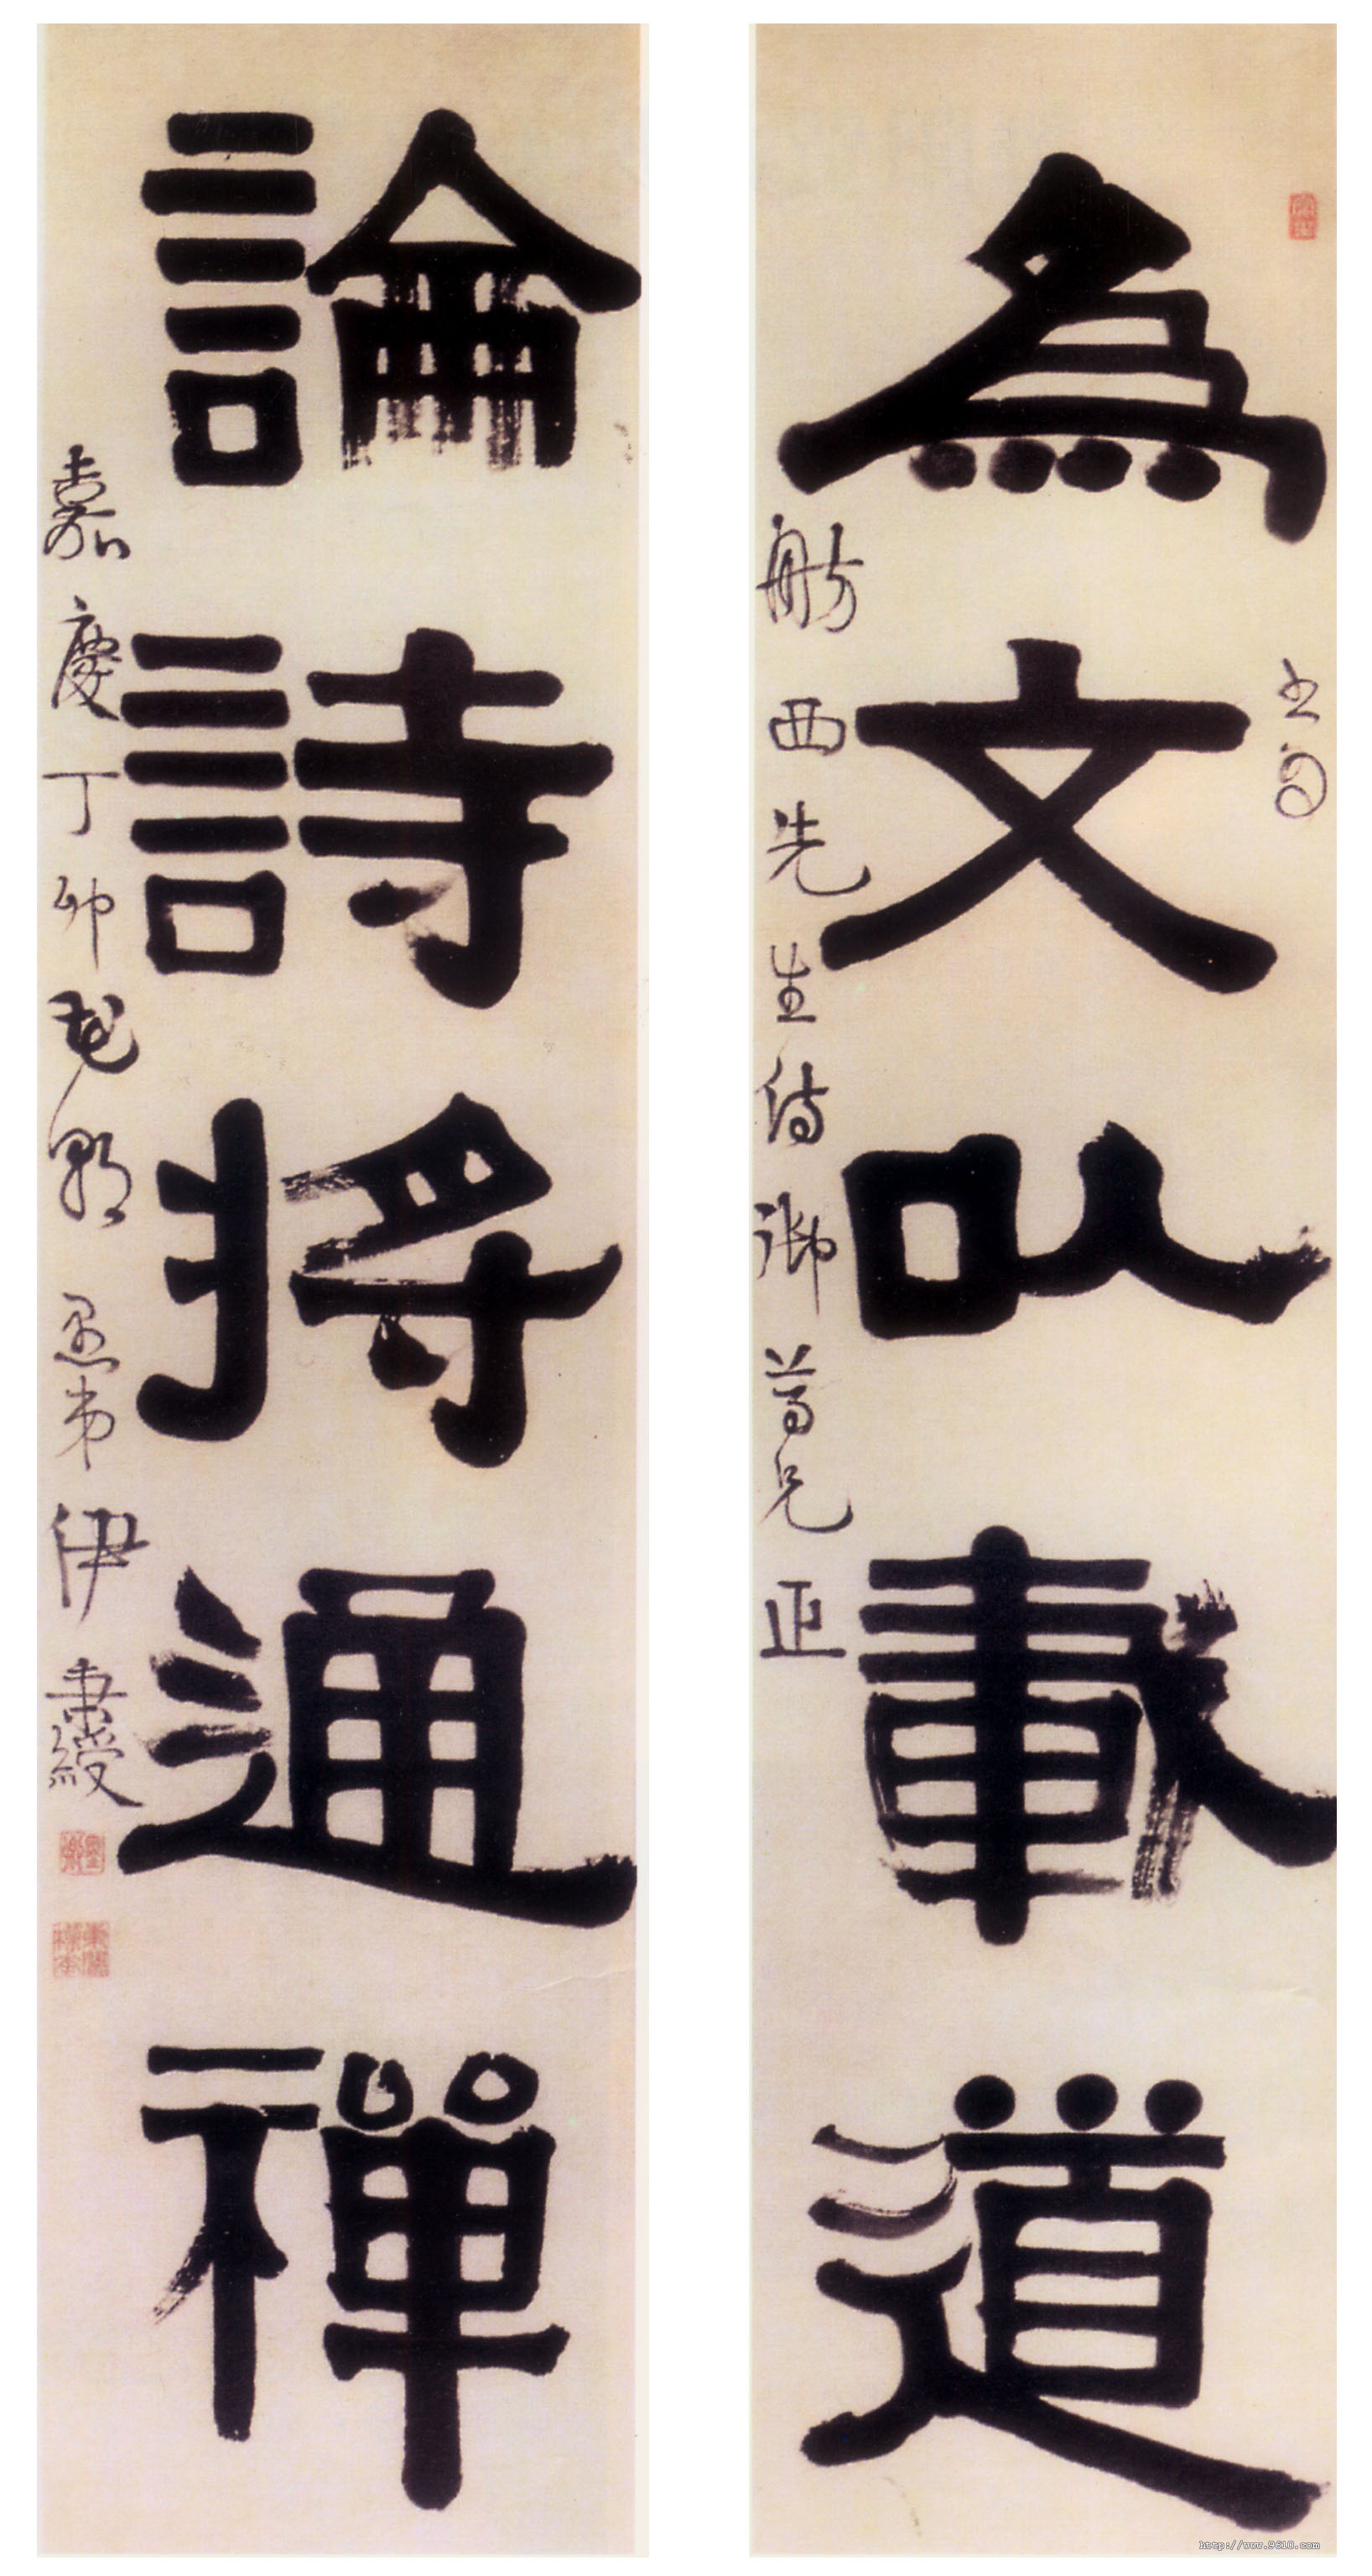 為文以載道
舫西先生侍御尊兄正
論詩將通禪
嘉慶丁卯花朝愚弟伊秉綬
http://www.9610.com